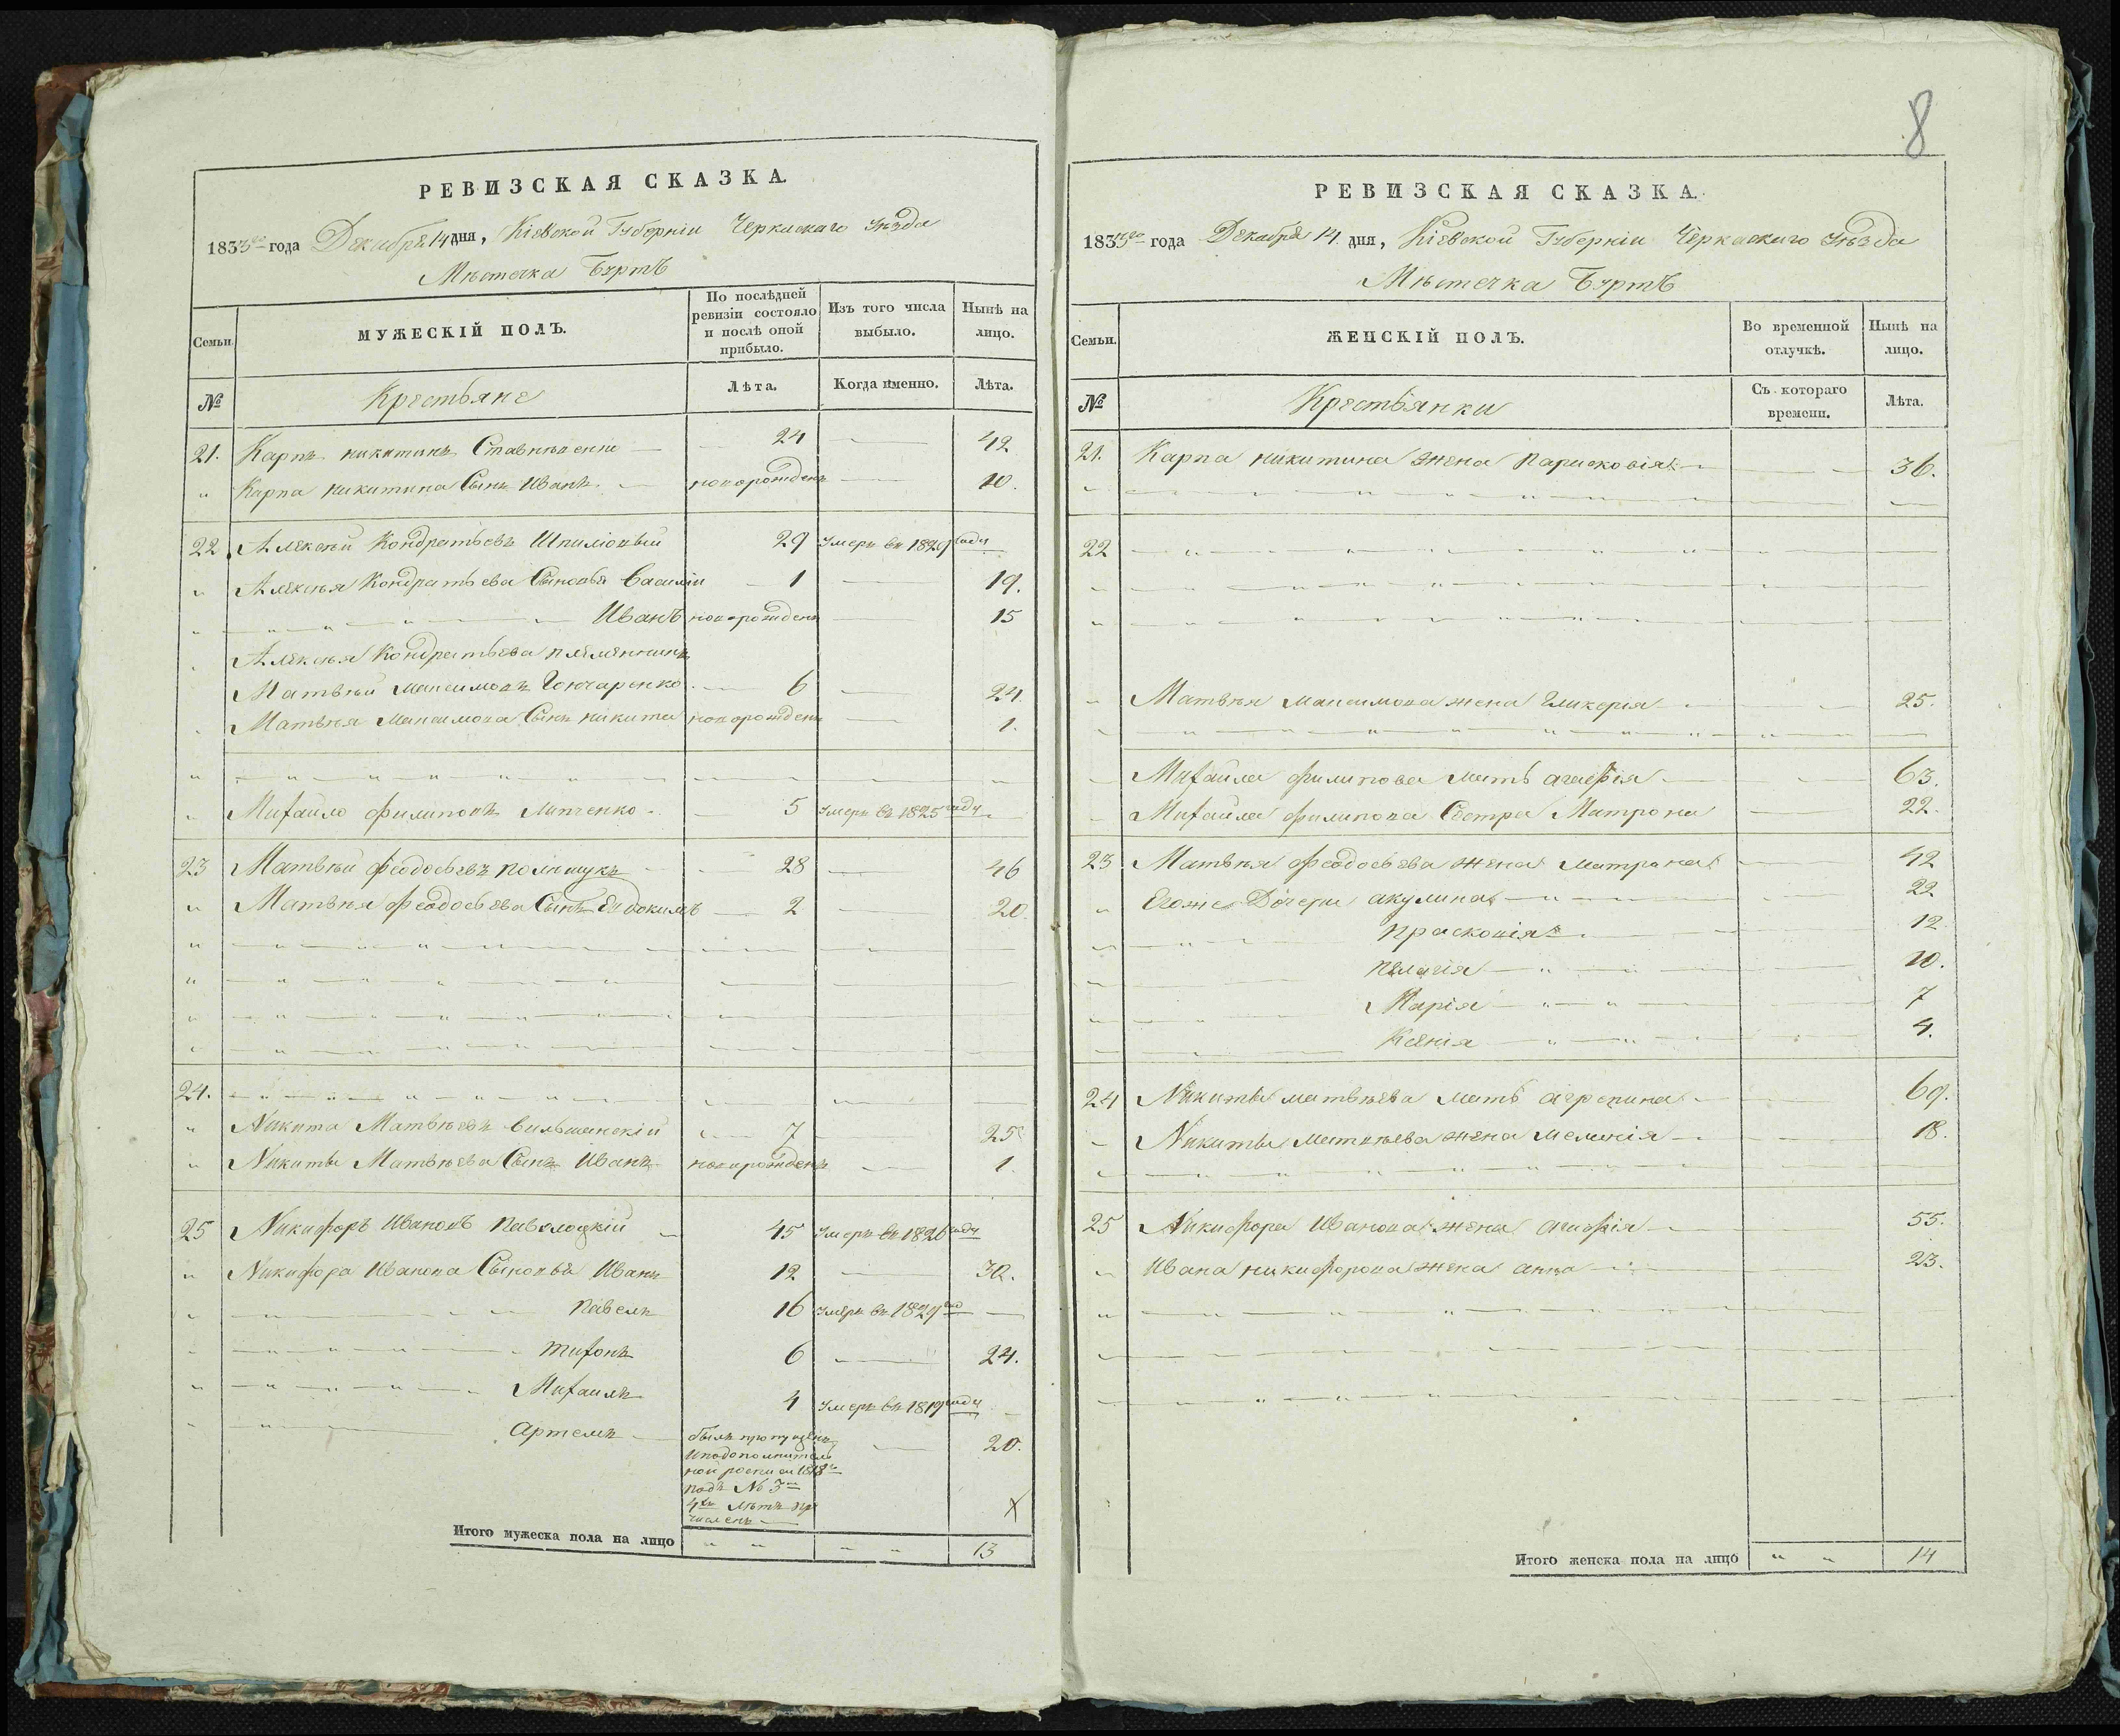 РЕВИЗСКАЯ СКАЗКА.
1833го года Декабря 14 дня, Кіевской Губерніи Черкаскаго Уѣзда
Мѣстечка Буртъ
Семьи.
МУЖЕСКІЙ ПОЛЪ.
По послѣдней ревизіи состояло и послѣ оной прибыло.
Изъ того числа выбыло.
Нынѣ на лицо.
№
Крестьяне
Лѣта.
Когда именно.
Лѣта.
21. Карпъ никитинъ 24 42
" Карпа никитина Сынъ Иванъ новорожденъ 10.
22. Алексѣй Кондратьевъ 29 Умеръ въ 1829 году
" Алексѣя Кондратьева Сыновья Василій 1 19.
" Иванъ новорожденъ 15
Алексѣя Кондратьева племянникъ
Матвѣй Максимовъ Гончаренко 6 24
Матвѣя Максимова Сынъ никита новорожденъ 1.
" Михайло филиповъ 5 Умеръ въ 1825 году
23 Матвѣй феодосьевъ полищукъ 28 46
" Матвѣя феодосьева Сынъ Евдокимъ 2 20.
24.
" Никита Матвѣевъ Вильшанскій 7 25
" Никиты Матвѣева Сынъ Иванъ новорожденъ 1.
25 Никифоръ Ивановъ Паволоцкій 45 Умеръ въ 1826 году
" Никифора Иванова Сыновья Иванъ 12 30.
Павелъ 16 Умеръ въ 1829 год
тихонъ 6 24.
Михаилъ 4 Умеръ въ 1819 году
Артемъ былъ пропущенъ 20.
иподополнитель
ной росписи 1818го
подъ № 3м
4хъ лѣтъ при
численъ
X
Итого мужеска пола на лицо " " " " 13
8
РЕВИЗСКАЯ СКАЗКА.
1833го года Декабря 14 дня, Кіевской Губерніи Черкаскаго Уѣзда
Мѣстечка Буртъ
Семьи.
ЖЕНСКІЙ ПОЛЪ.
Во временной отлучкѣ.
Нынѣ на лицо.
№
Крестьянки
Съ котораго времени.
Лѣта.
21. Карпа никитина жена Парисковія 36.
22
" Матвѣя Максимова жена Гликерія 25.
Михайла филипова мать агафія 63.
Михайла филипова Сестра Матрона 22.
23 Матвѣя феодосьева жена матрона 42
" Егоже Дочери акулина 22
Прасковія 12
Пелагія 10.
Марія 7
Ксенія 4.
24 Никиты матвѣева мать агрепина 69.
Никиты Матвѣева жена меланія 18.
25 Никифора Иванова жена агафія 55.
" Ивана никифорова жена анна 23.
Итого женска пола на лицо " " 14